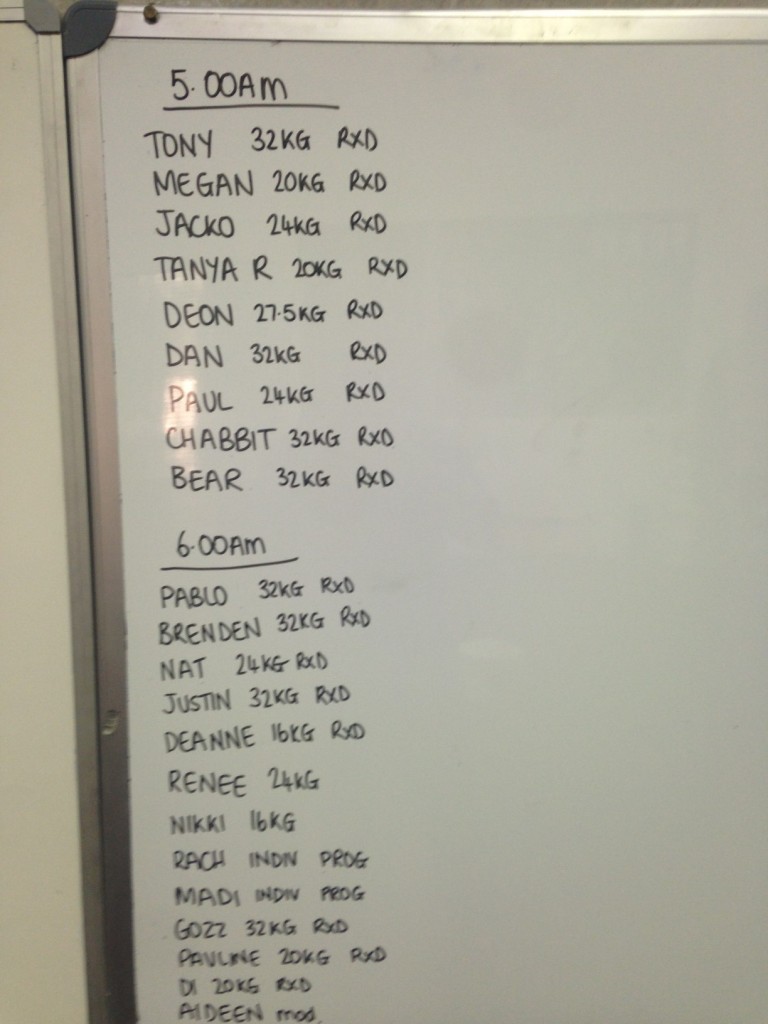 5.00AM
TONY 32KG RXD
MEGAN 20KG RXD
JACKO 24KG RXD
TANYA R 20KG RXD
DEON 27.5KG RXD
DAN 32KG RXD
PAUL 24KG RXD
CHABBIT 32KG RXD
BEAR 32KG RXD
6.00AM
PABLO 32KG RXD
BRENDEN 32KG RXD
NAT 24KG RXD
JUSTIN 32KG RXD
DEANNE 16KG RXD
RENEE 24KG
NIKKI 16KG
RACH INDIV PROG
MADI INDIV PROG
GOZZ 32KG RXD
PAULINE 20KG RXD
DI 20KG RXD
AIDEEN mod.